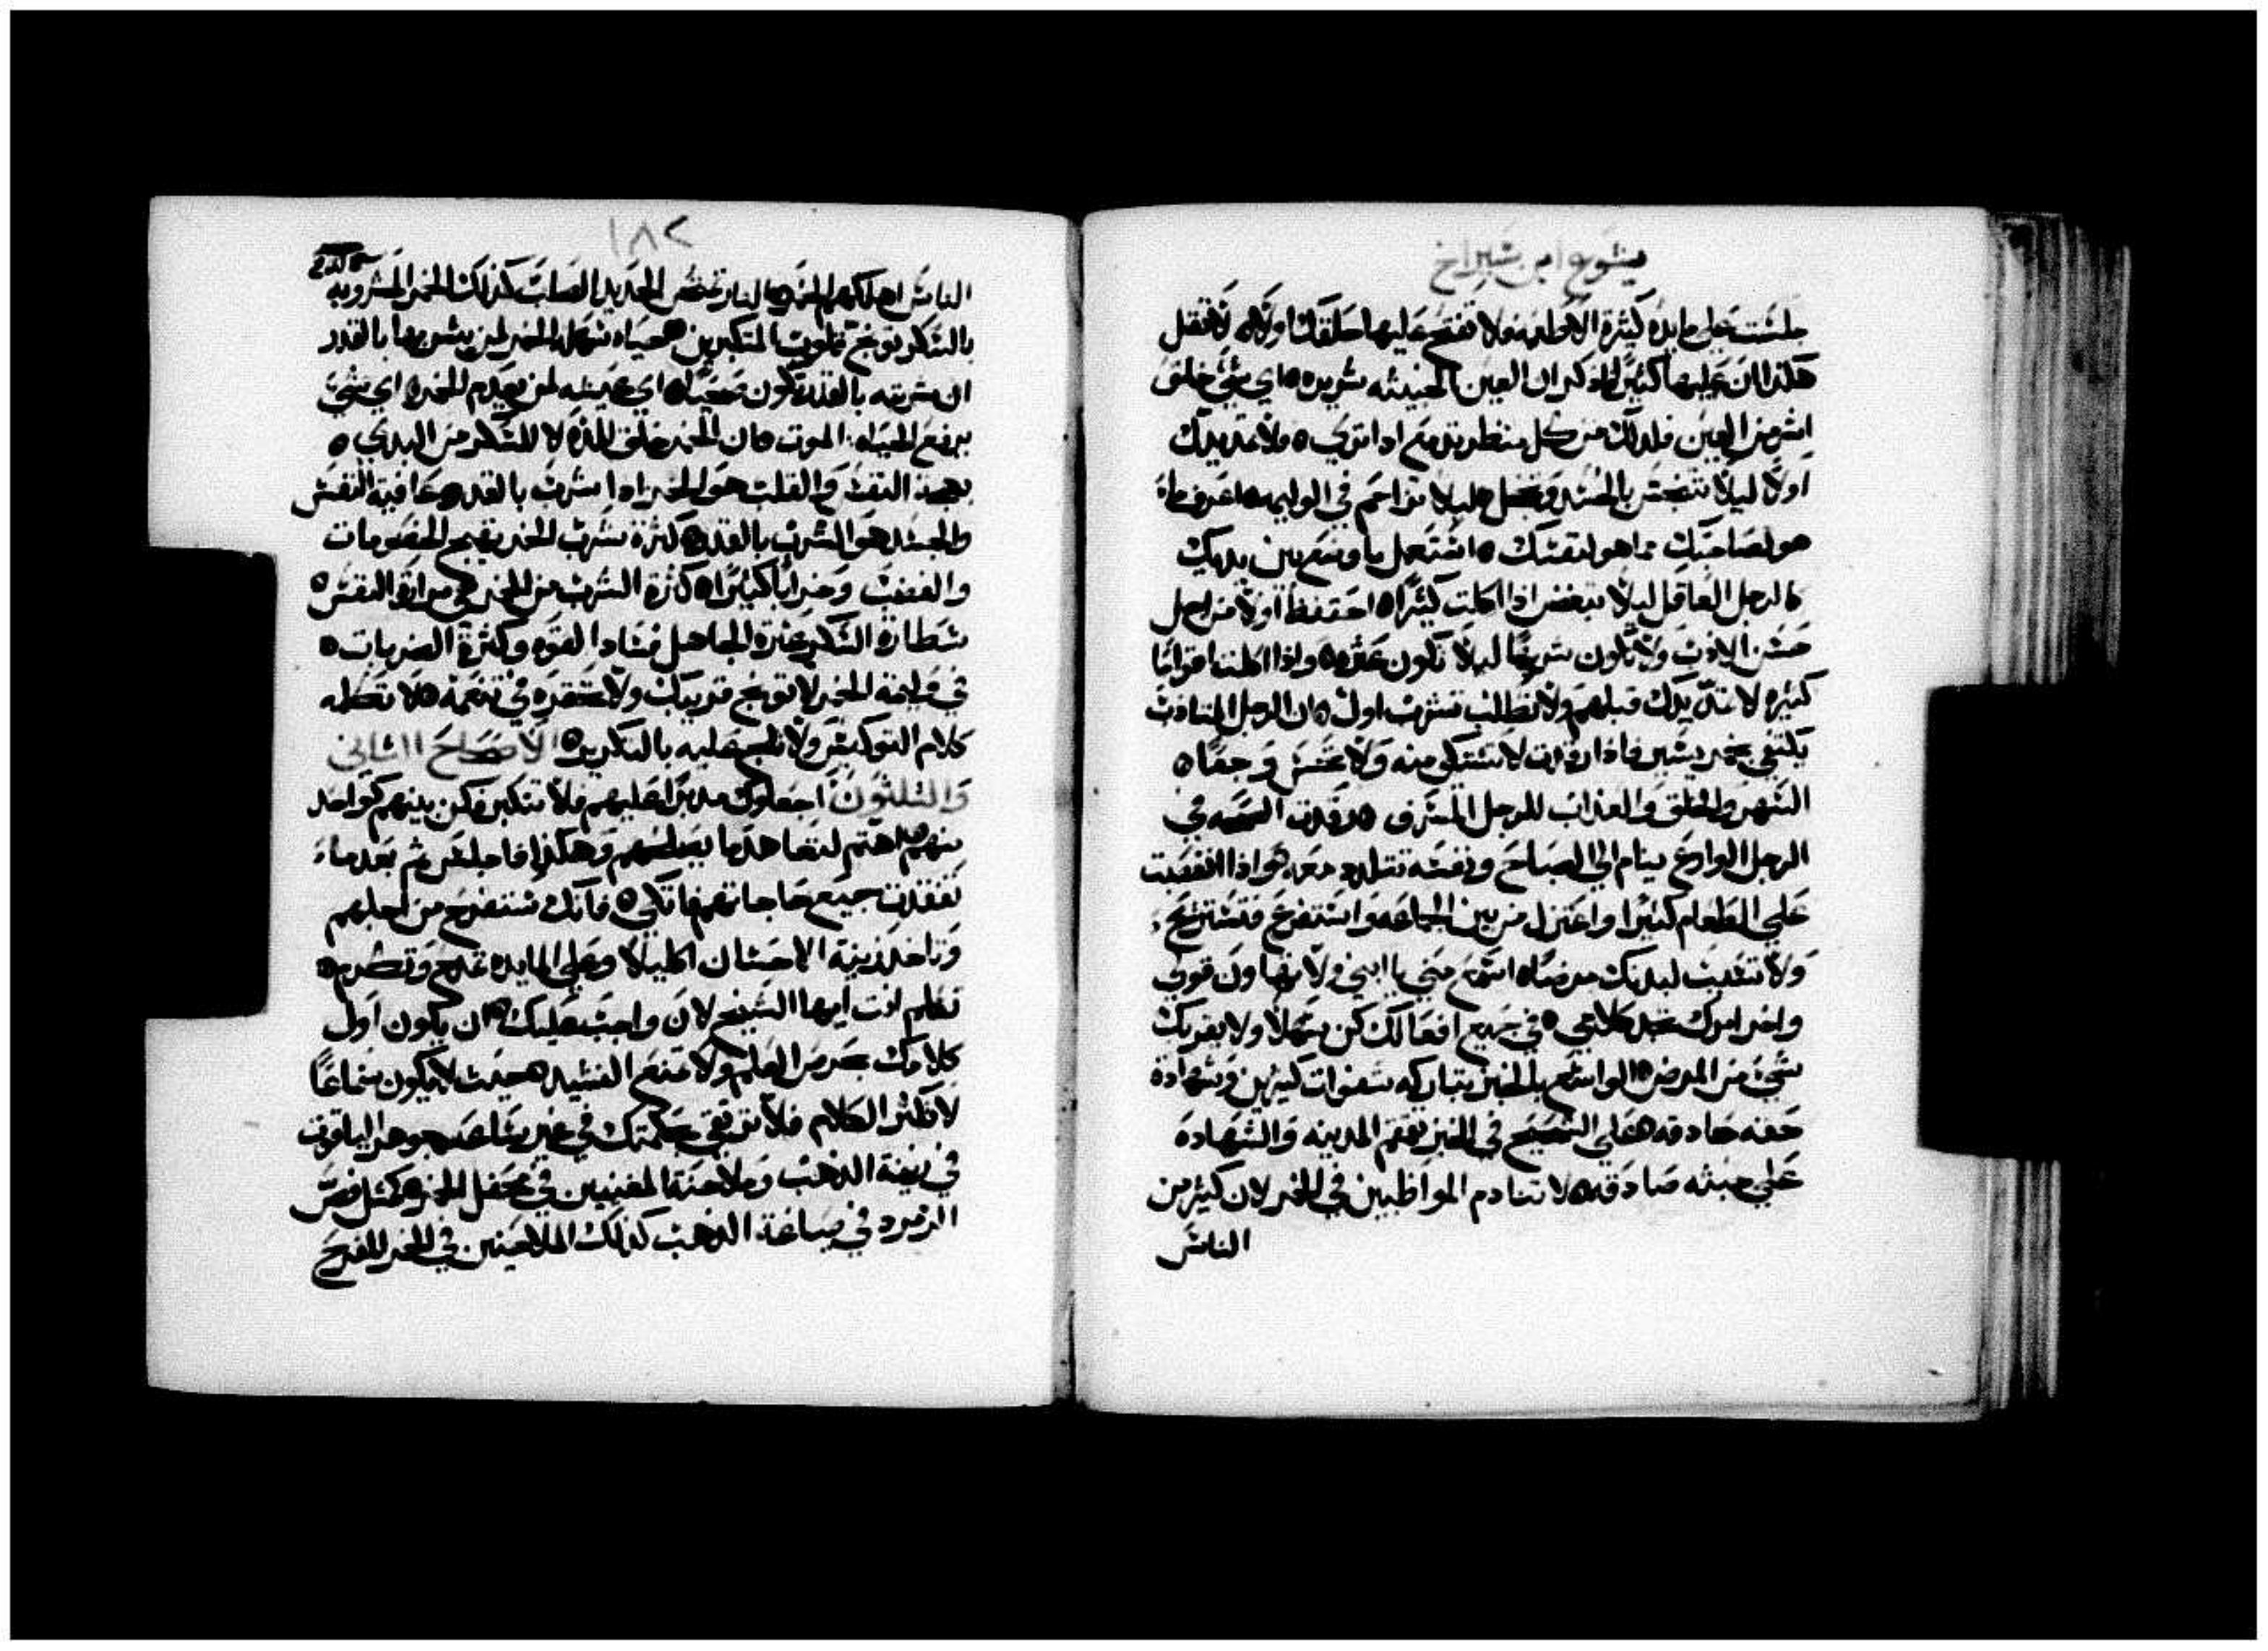 يشوع ابن شيراخ
جلست على مايده كثيرة الاطعمه ولا تفتح عليها حلقك اولاً ه لا تقل
هكذا ان عليها كثيراً اذكر ان العين الخبيثه شريره ه اي شي خلق
اشر من العين فلذلك من كل منظر تدمع اذا تري ه ولا تمد يدك
اولاً ليلا تتنجس بالحسد وتخجل ه ليلا تزاحم في الوليمه ه اعرف ما
هو لصاحبك مما هو لنفسك ه استعمل ما وضع بين يديك
كالرجل العاقل ليلا تبغض اذا اكلت كثيراً ه احتفظ اولاً من اجل
حسن الادب ولا تكون شرهاً ليلا تكون عثره ه واذا اكلت مع اقواماً
كثيره لا تمد يدك قبلهم ولا تطلب تشرب اول ه ان الرجل المتادب
يكتفي بخمر يسير فاذا رقدت لا تشتكي منه ولا تحس وجعاً ه
السهر والقلق والعذاب للرجل المسرف ه رقدت الصحه في
الرجل الوادع ينام الي الصباح ونفسه تتلدد معه ه واذا اغتصبت
علي الطعام كثيراً واعتزل من بين الجماعه واستفرغ فتستريح
ولا تجلب لبدنك مرضاً ه اسمع مني يا ابني ولا تتهاون قولي
واخر امرك تجد كلامي ه في جميع افعالك كن سهلاً ولا يعريك
شي من المرض ه الواسع بالخبز يتباركه شفوات كثيرين وشهادة
حقه صادقه ه علي الشحيح في الخبز تقمقم المدينه والشهاده
علي خبثه صادقه ه لا تنادم المواظبين في الخمر لان كثير من
الناس
١٨٢
الناس اهلكهم الخمر ه النار تمتحن الحديد الصلب كذلك الخمر المشروبه
بالسكر توبخ قلوب المتكبرين ه حياه سهله الخمر لمن يشربها بالقدر
ان شربته بالقدر تكون صحيحاً ه اي عيشه لمن يعدم الخمر ه اي شي
يرفع الحياه الموت ه ان الخمر خلق للذه لا للسكر من البدي ه
بهجة النفس والقلب هو الخمر اذا اشرب بالقدر ه عافية النفس
والجسد هو الشرب بالقدر ه كثرة شرب الخمر يقيم الخصومات
والغضب وخراباً كثيراً ه كثرة الشرب من الخمر هي مرارة النفس ه
شطارة السكر عثرة الجاهل فساد القوه وكثرة الضربات ه
في وليمة الخمر لا توبخ قريبك ولا تحتقره في تنعمه ه لا تكلمه
كلام التوكيس ولا تلح عليه بالتكرير ه الاصحاح الثاني
والثلثون اجعلوك مدبراً عليهم فلا تتكبر فكن بينهم كواحد
منهم ه اهتم لتعاهد ما يصلهم وهكذا فاجلس ثم بعد ما
تفقدت جميع حاجاتهم فاتكي ه فانك ستفرح من اجلهم
وتاخذ زينة الاحسان اكليلاً وعلي المايده تمدح وتكرم ه
تكلم انت ايها الشيخ لان واجب عليك ه ان يكون اول
كلامك بحرص العلم ولا تمنع النشيد ه حيث لا يكون سماعاً
لا تكثر الكلام فلا ترتفع بحكمتك في غير ساعه ه جوهر الياقوت
في زينة الذهب وملاحنة المغنيين في محفل الخمر ه كمثل فص
الزمرد في صياغة الذهب كذلك الملاحنين في الخمر المفرح